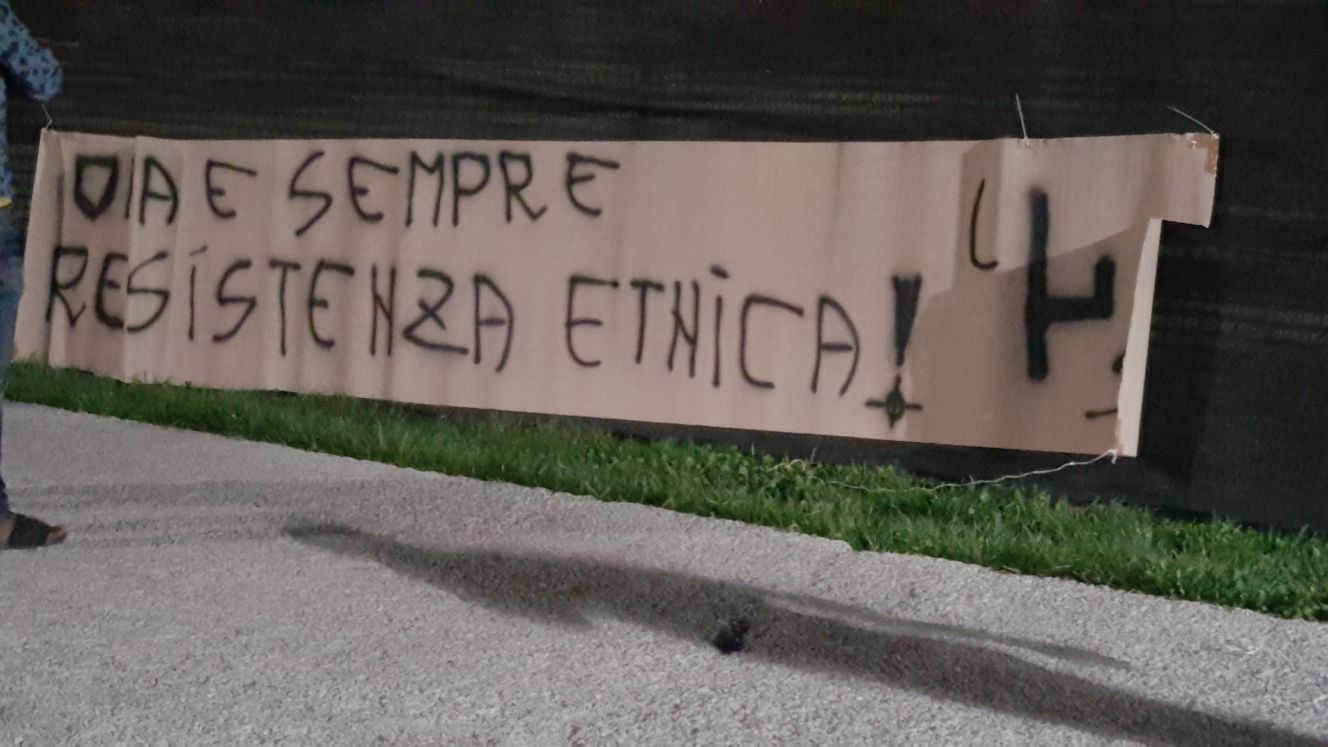 OIA E SEMPRE
RESISTENZA ETNICA!